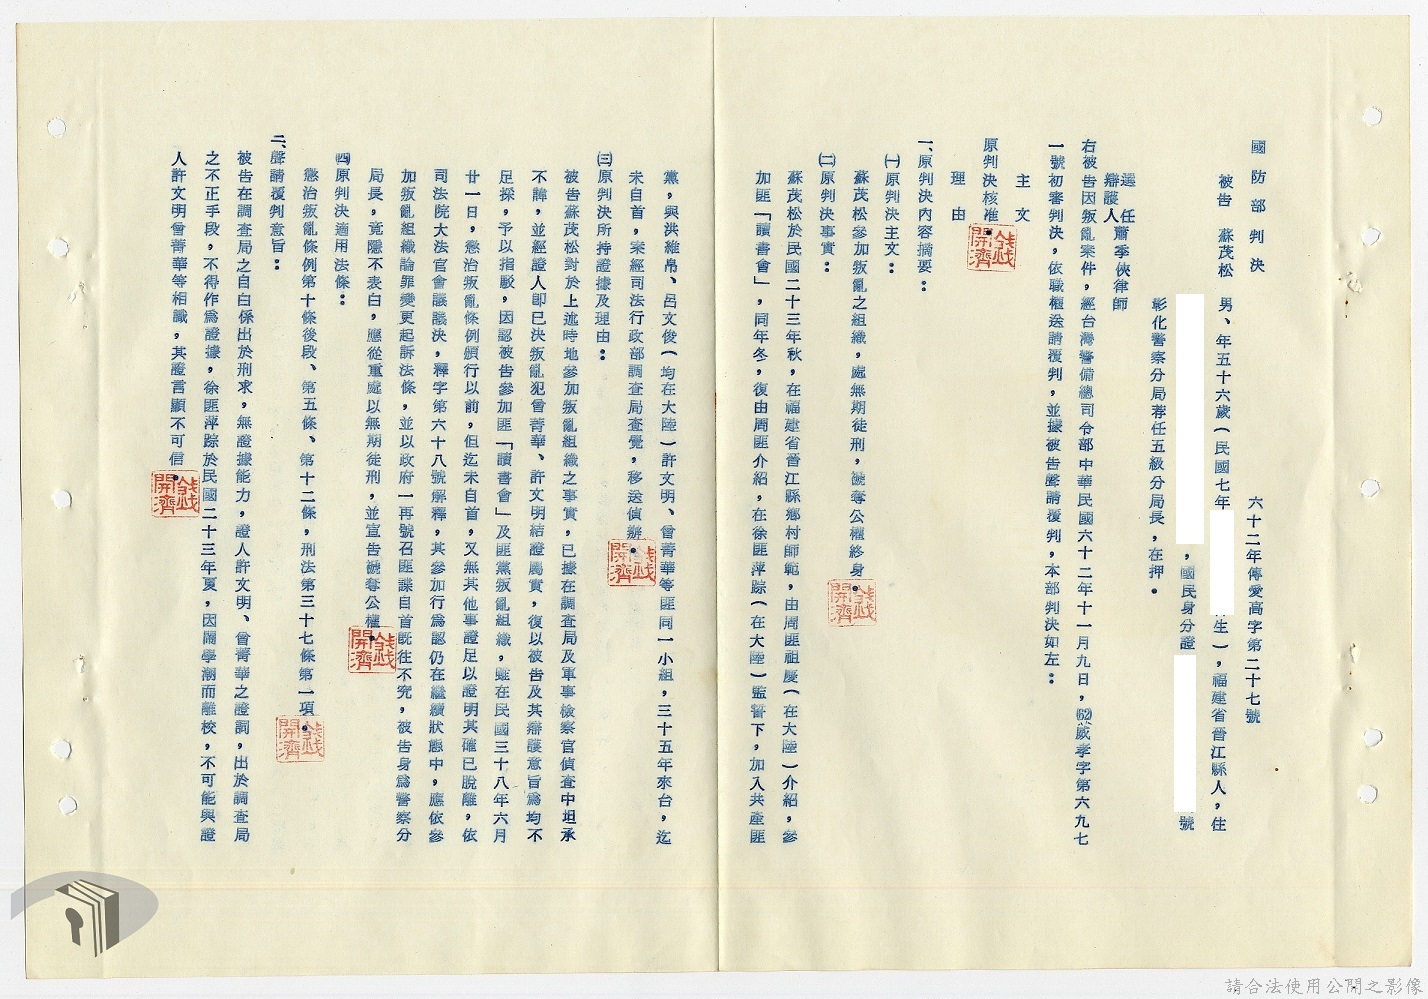 國防部判決
六十二年傳愛高字第二十七號
被告　蘇茂松　男、年五十六歲（民國七年
生），福建省晉江縣人，住
，國民身分證
號
彰化警察分局荐任五級分局長，在押。
選任
辯護人　蕭季俠律師
右被告因叛亂案件，經台灣警備總司令部中華民國六十二年十一月九日，(62)歲孝字第六九七
一號初審判決，依職權送請覆判，並據被告聲請覆判，本部判決如左：
主　文
原判決核准。
理　由
一、原判決內容摘要：
㈠原判決主文：
蘇茂松參加叛亂之組織，處無期徒刑，褫奪公權終身。
㈡原判決事實：
蘇茂松於民國二十三年秋，在福建省晉江縣鄉村師範，由周匪祖慶（在大陸）介紹，參
加匪「讀書會」，同年冬，復由周匪介紹，在徐匪萍踪（在大陸）監誓下，加入共產匪
黨，與洪維帛、呂文俊（均在大陸）許文明、曾菁華等匪同一小組，三十五年來台，迄
未自首，案經司法行政部調查局查覺，移送偵辦。
㈢原判決所持證據及理由：
被告蘇茂松對於上述時地參加叛亂組織之事實，已據在調查局及軍事檢察官偵查中坦承
不諱，並經證人即已決叛亂犯曾菁華、許文明結證屬實，復以被告及其辯護意旨為均不
足採，予以指駁，因認被告參加匪「讀書會」及匪黨叛亂組織，雖在民國三十八年六月
廿一日，懲治叛亂條例頒行以前，但迄未自首，又無其他事證足以證明其確已脫離，依
司法院大法官會議議決，釋字第六十八號解釋，其參加行為認仍在繼續狀態中，應依參
加叛亂組織論罪變更起訴法條，並以政府一再號召匪諜自首既往不究，被告身為警察分
局長，竟隱不表白，應從重處以無期徒刑，並宣告褫奪公權。
㈣原判決適用法條：
懲治叛亂條例第十條後段、第五條、第十二條，刑法第三十七條第一項。
二、聲請覆判意旨：
被告在調查局之自白係出於刑求，無證據能力，證人許文明、曾菁華之證詞，出於調查局
之不正手段，不得作為證據，徐匪萍踪於民國二十三年夏，因鬧學潮而離校，不可能與證
人許文明曾菁華等相識，其證言顯不可信。
錢開濟
錢開濟
錢開濟
錢開濟
錢開濟
錢開濟
請合法使用公開之影像